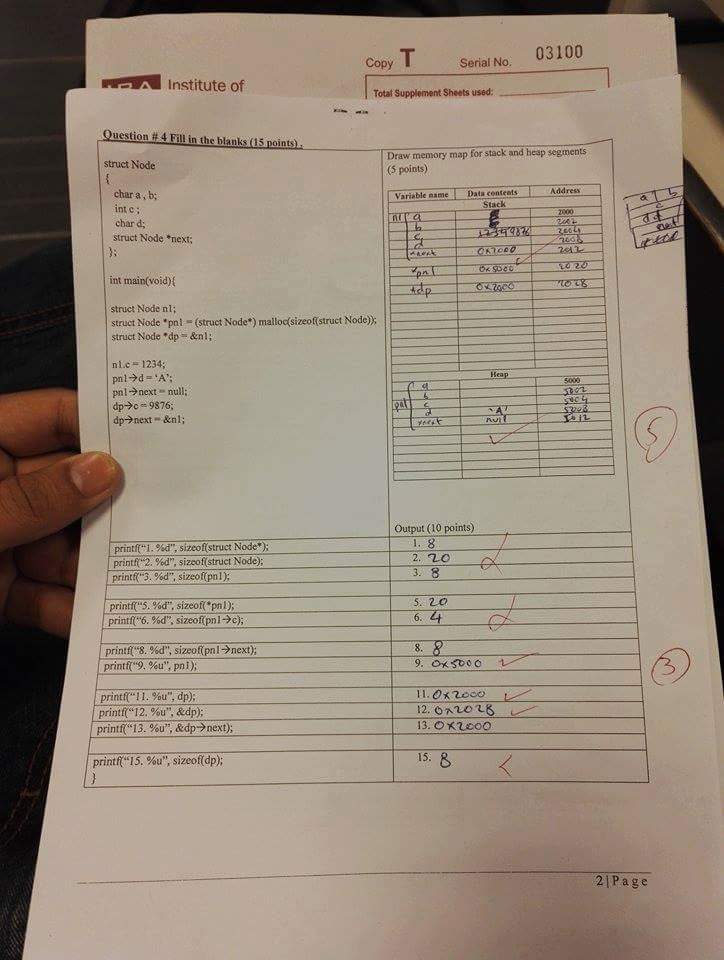 Copy T Serial No. 03100
Institute of
Total Supplement Sheets used:
Question # 4 Fill in the blanks (15 points) .
struct Node
{
char a , b;
int c ;
char d;
struct Node *next;
};
int main(void){
struct Node n1;
struct Node *pn1 = (struct Node*) malloc(sizeof(struct Node));
struct Node *dp = &n1;
n1.c = 1234;
pn1→d = ‘A’;
pn1→next = null;
dp→c = 9876;
dp→next = &n1;
Draw memory map for stack and heap segments
(5 points)
Variable name Data contents Address
Stack
n1 a 2000
b 2002
c 9876 2004
d 2008
*next 0x2000 2012
*pn1 0x5000 2020
*dp 0x2000 2028
Heap
pn1 a 5000
b 5002
c 5004
d 'A' 5008
*next null 5012
a b
c
d
next
5
Output (10 points)
printf(“1. %d”, sizeof(struct Node*); 1. 8
printf(“2. %d”, sizeof(struct Node); 2. 20
printf(“3. %d”, sizeof(pn1); 3. 8
printf(“5. %d”, sizeof(*pn1); 5. 20
printf(“6. %d”, sizeof(pn1→c); 6. 4
printf(“8. %d”, sizeof(pn1→next); 8. 8
printf(“9. %u”, pn1); 9. 0x5000
3
printf(“11. %u”, dp); 11. 0x2000
printf(“12. %u”, &dp); 12. 0x2028
printf(“13. %u”, &dp→next); 13. 0x2000
printf(“15. %u”, sizeof(dp); 15. 8
}
2|Page